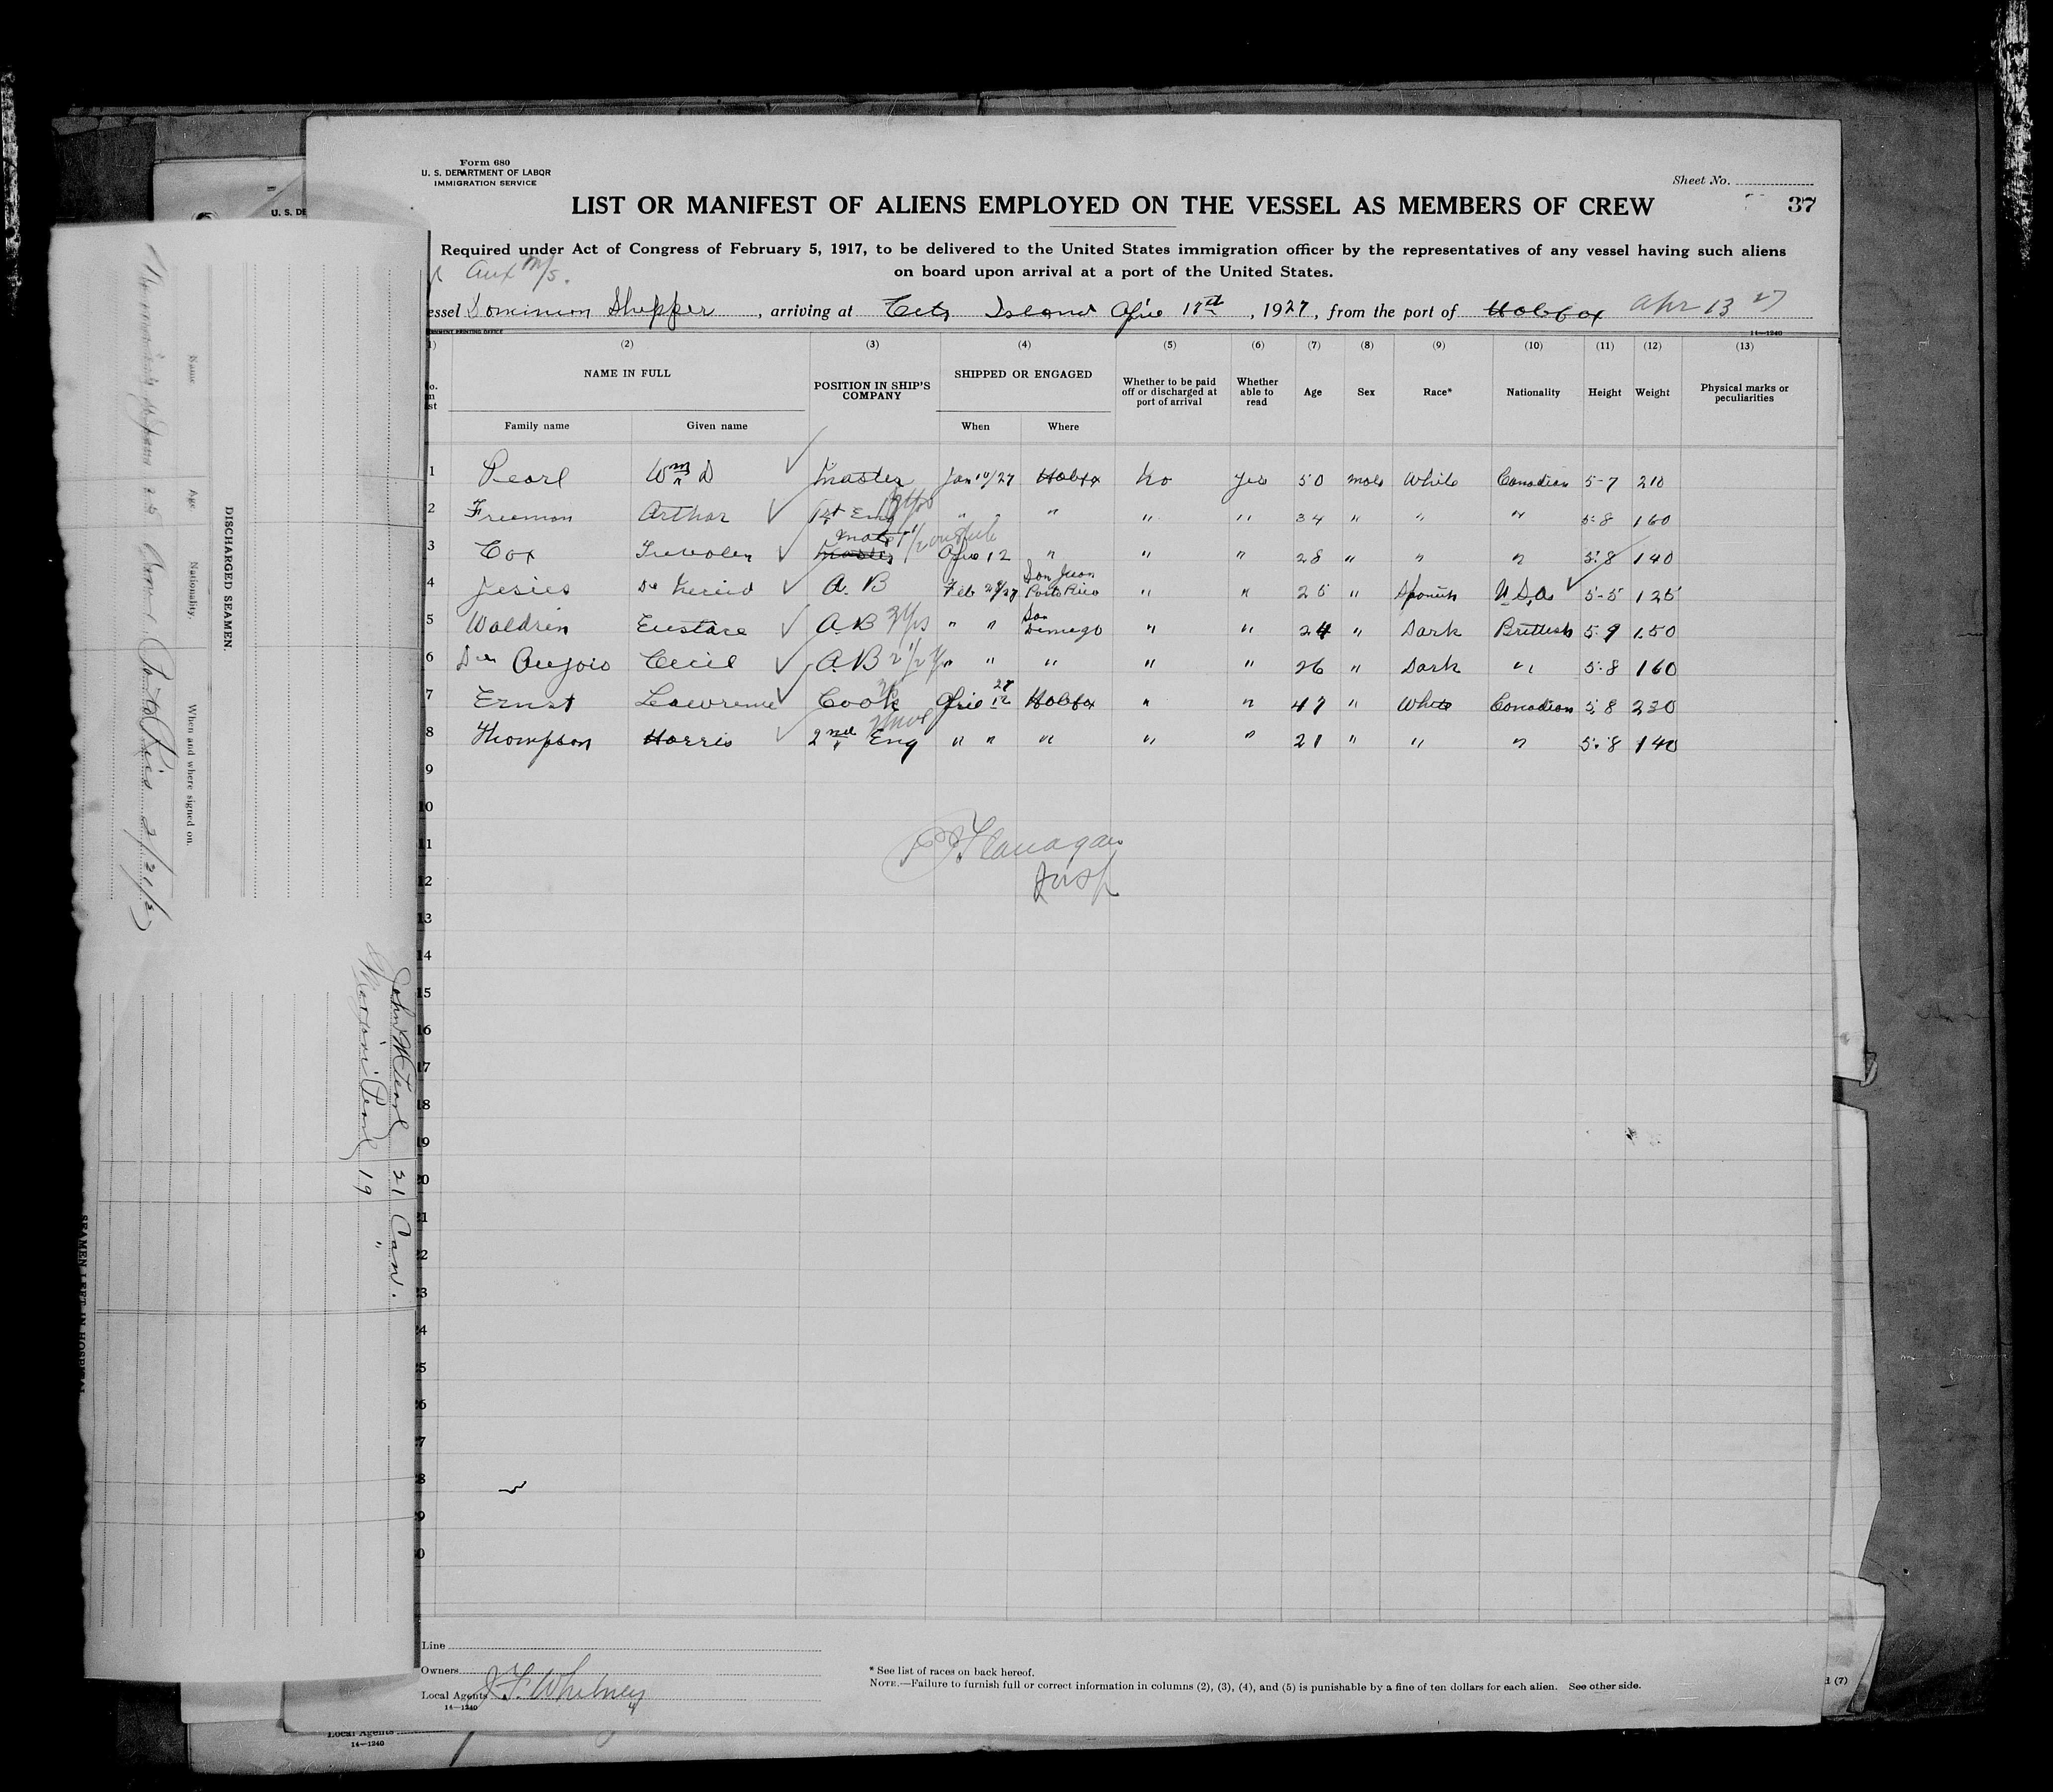 Form 680
U. S. DEPARTMENT OF LABOR
IMMIGRATION SERVICE
Sheet No.
LIST OR MANIFEST OF ALIENS EMPLOYED ON THE VESSEL AS MEMBERS OF CREW
37
Required under Act of Congress of February 5, 1917, to be delivered to the United States immigration officer by the representatives of any vessel having such aliens
on board upon arrival at a port of the United States.
Aux M/S.
essel Dominion Shipper, arriving at City Island, 1927, from the port of Halifax Apr 13 27
14—1240
(2) (3) (4) (5) (6) (7) (8) (9) (10) (11) (12) (13)
NAME IN FULL POSITION IN SHIP'S COMPANY SHIPPED OR ENGAGED Whether to be paid off or discharged at port of arrival Whether able to read Age Sex Race* Nationality Height Weight Physical marks or peculiarities
Family name Given name When Where
1 Pearl Wm D Master Jan 10/27 Halifax No Yes 50 Male White Canadian 5-7 210
2 Freeman Arthur 1st Eng " " " " " 34 " " " 5-8 160
3 Cox Mate 12 " " " 28 " " " 5-8 140
4 Jesies A.B Feb 27 San Juan Porto Rico " " 25 " Spanish U.S.A. 5-5 125
5 Waldren Eustace A.B " " San Demingo " " 24 " Dark Brittish 5-9 150
6 Cecil A.B " " " " " 26 " Dark " 5-8 160
7 Ernst Lawrence Cook 12 Halifax " " 47 " White Canadian 5-8 230
8 Thompson Harris 2nd Eng " " " " " 21 " " " 5-8 140
9
10
11
12
13
14
15
16
17
18
19
20
21
22
23
24
25
26
27
28
29
30
Flanagan
Insp
Line
Owners
Local Agents J F Whitney
14—1240
* See list of races on back hereof.
NOTE.—Failure to furnish full or correct information in columns (2), (3), (4), and (5) is punishable by a fine of ten dollars for each alien. See other side.
(7)
DISCHARGED SEAMEN.
Name Age. Nationality. When and where signed on.
25 Porto Rico
John Pearl 21 Can.
Marjorie Pearl 19 "
SEAMEN LEFT IN HOSPITAL
U. S. DE
Local Agents
14—1240